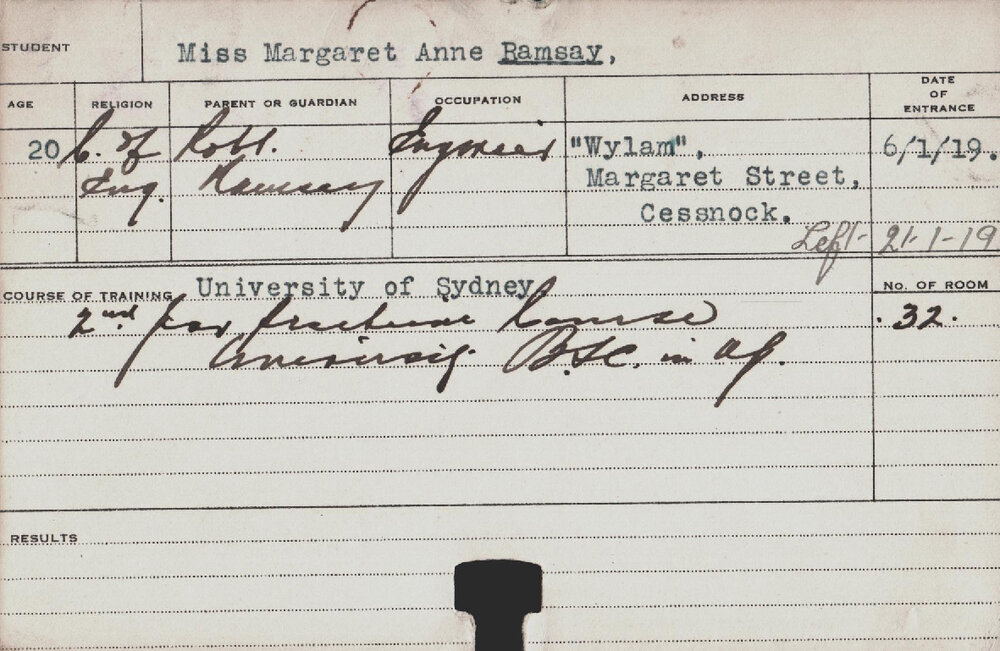 STUDENT Miss Margaret Anne Ramsay,
AGE RELIGION PARENT OR GUARDIAN OCCUPATION ADDRESS DATE OF ENTRANCE
20 C. of Robt. Engineer "Wylam", 6/1/19.
Eng. Ramsay Margaret Street,
Cessnock.
Left 21-1-19
COURSE OF TRAINING University of Sydney No. OF ROOM
2nd year Course 32.
University. B.Sc. in Ag.
RESULTS